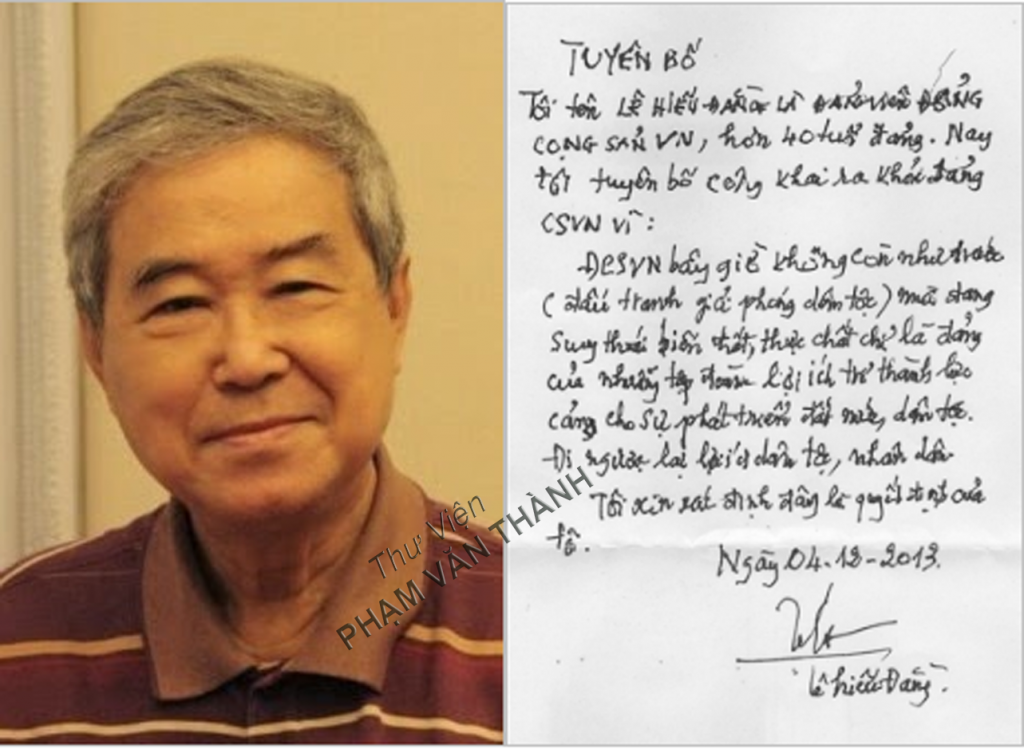 TUYÊN BỐ
Tôi tên LÊ HIẾU ĐẰNG LÀ ĐẢNG VIÊN ĐẢNG
CỘNG SẢN VN, hơn 40 tuổi đảng. Nay
tôi tuyên bố công khai ra khỏi đảng
CSVN vì:
ĐCSVN bây giờ không còn như trước
(đấu tranh giải phóng dân tộc) mà đang
suy thoái biến chất, thực chất chỉ là đảng
của những tập đoàn lợi ích trở thành lực
cảng cho sự phát triển đất nước, dân tộc.
Đi ngược lại lợi ích dân tộc, nhân dân
Tôi xin xác định đây là quyết định của
tôi.
Ngày 04-12-2013.
Lê hiếu Đằng.
Thư Viện
PHẠM VĂN THÀNH